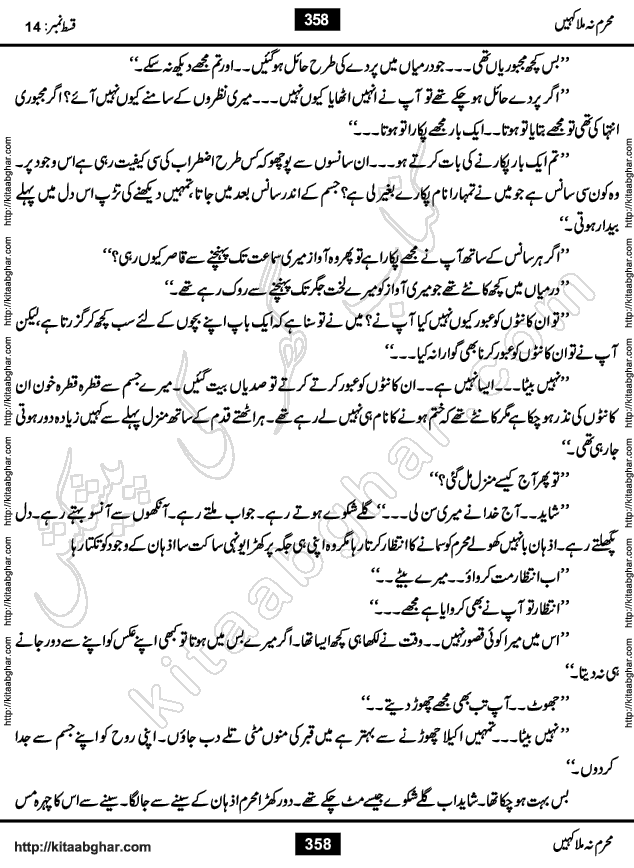 محرم نہ ملا کہیں
358
قسط نمبر: 14
’’بس کچھ مجبوریاں تھی۔۔۔جو درمیاں میں پردے کی طرح حائل ہوگئیں۔۔اور تم مجھے دیکھ نہ سکے۔‘‘
’’اگر پردے حائل ہو چکے تھے تو آپ نے انہیں اٹھایا کیوں نہیں۔۔۔میری نظروں کے سامنے کیوں نہیں آئے؟ اگر مجبوری
انتہا کی تھی تو مجھے بتایا تو ہوتا۔۔ایک بار مجھے پکارا تو ہوتا۔۔۔‘‘
’’تم ایک بار پکارنے کی بات کرتے ہو۔۔۔ان سانسوں سے پوچھو کہ کس طرح اضطراب کی سی کیفیت رہی ہے اس وجود پر۔
وہ کون سی سانس ہے جو میں نے تمہارا نام پکارے بغیر لی ہے؟ جسم کے اندر سانس بعد میں جاتا، تمہیں دیکھنے کی تڑپ اس دل میں پہلے
بیدار ہوتی۔‘‘
’’اگر ہر سانس کے ساتھ آپ نے مجھے پکارا ہے تو پھر وہ آواز میری سماعت تک پہنچنے سے قاصر کیوں رہی؟‘‘
’’درمیاں میں کچھ کانٹے تھے جو میری آواز کو میرے لخت جگر تک پہنچنے سے روک رہے تھے۔‘‘
’’تو ان کانٹوں کو عبور کیوں نہیں کیا آپ نے؟ میں نے تو سنا ہے کہ ایک باپ اپنے بچوں کے لئے سب کچھ کر گزرتا ہے، لیکن
آپ نے تو ان کانٹوں کو عبور کرنا بھی گوارا نہ کیا۔۔۔‘‘
’’نہیں بیٹا۔۔۔ایسا نہیں ہے۔۔ان کانٹوں کو عبور کرتے کرتے تو صدیاں بیت گئیں۔میرے جسم سے قطرہ قطرہ خون ان
کانٹوں کی نذر ہو چکا ہے مگر کانٹے تھے کہ ختم ہونے کا نام ہی نہیں لے رہے تھے۔ہر اٹھتے قدم کے ساتھ منزل پہلے سے کہیں زیادہ دور ہوتی
جا رہی تھی۔‘‘
’’تو پھر آج کیسے منزل مل گئی؟‘‘
’’شاید۔۔آج خدا نے میری سن لی۔۔۔‘‘ گلے شکوے ہوتے رہے۔ جواب ملتے رہے۔ آنکھوں سے آنسو بہتے رہے۔ دل
پگھلتے رہے۔اذہان بانہیں کھولے محرم کو سمانے کا انتظار کرتا رہا مگر وہ اپنی ہی جگہ پر کھڑا یونہی ساکت سا اذہان کے وجود کو تکتا رہا
’’اب انتظار مت کرواؤ۔۔میرے بیٹے۔۔‘‘
’’انتظار تو آپ نے بھی کروایا ہے مجھے۔۔۔‘‘
’’اس میں میرا کوئی قصور نہیں۔۔وقت نے لکھا ہی کچھ ایسا تھا۔اگر میرے بس میں ہوتا تو کبھی اپنے عکس کو اپنے سے دور جانے
ہی نہ دیتا۔‘‘
’’جھوٹ۔۔آپ تب بھی مجھے چھوڑ دیتے۔۔‘‘
’’نہیں بیٹا۔۔۔تمہیں اکیلا چھوڑنے سے بہتر ہے میں قبر کی منوں مٹی تلے دب جاؤں۔ اپنی روح کو اپنے جسم سے جدا
کردوں۔‘‘
بس بہت ہو چکا تھا۔شاید اب گلے شکوے جیسے مٹ چکے تھے۔دور کھڑا محرم اذہان کے سینے سے جا لگا۔سینے سے اس کا چہرہ مس
http://kitaabghar.com
http://kitaabghar.com
http://kitaabghar.com
http://kitaabghar.com
http://kitaabghar.com
http://kitaabghar.com
http://kitaabghar.com
http://kitaabghar.com
http://kitaabghar.com
http://kitaabghar.com
http://kitaabghar.com
http://kitaabghar.com
کتاب گھر کی پیشکش
kitaabghar.com
محرم نہ ملا کہیں
358
http://kitaabghar.com